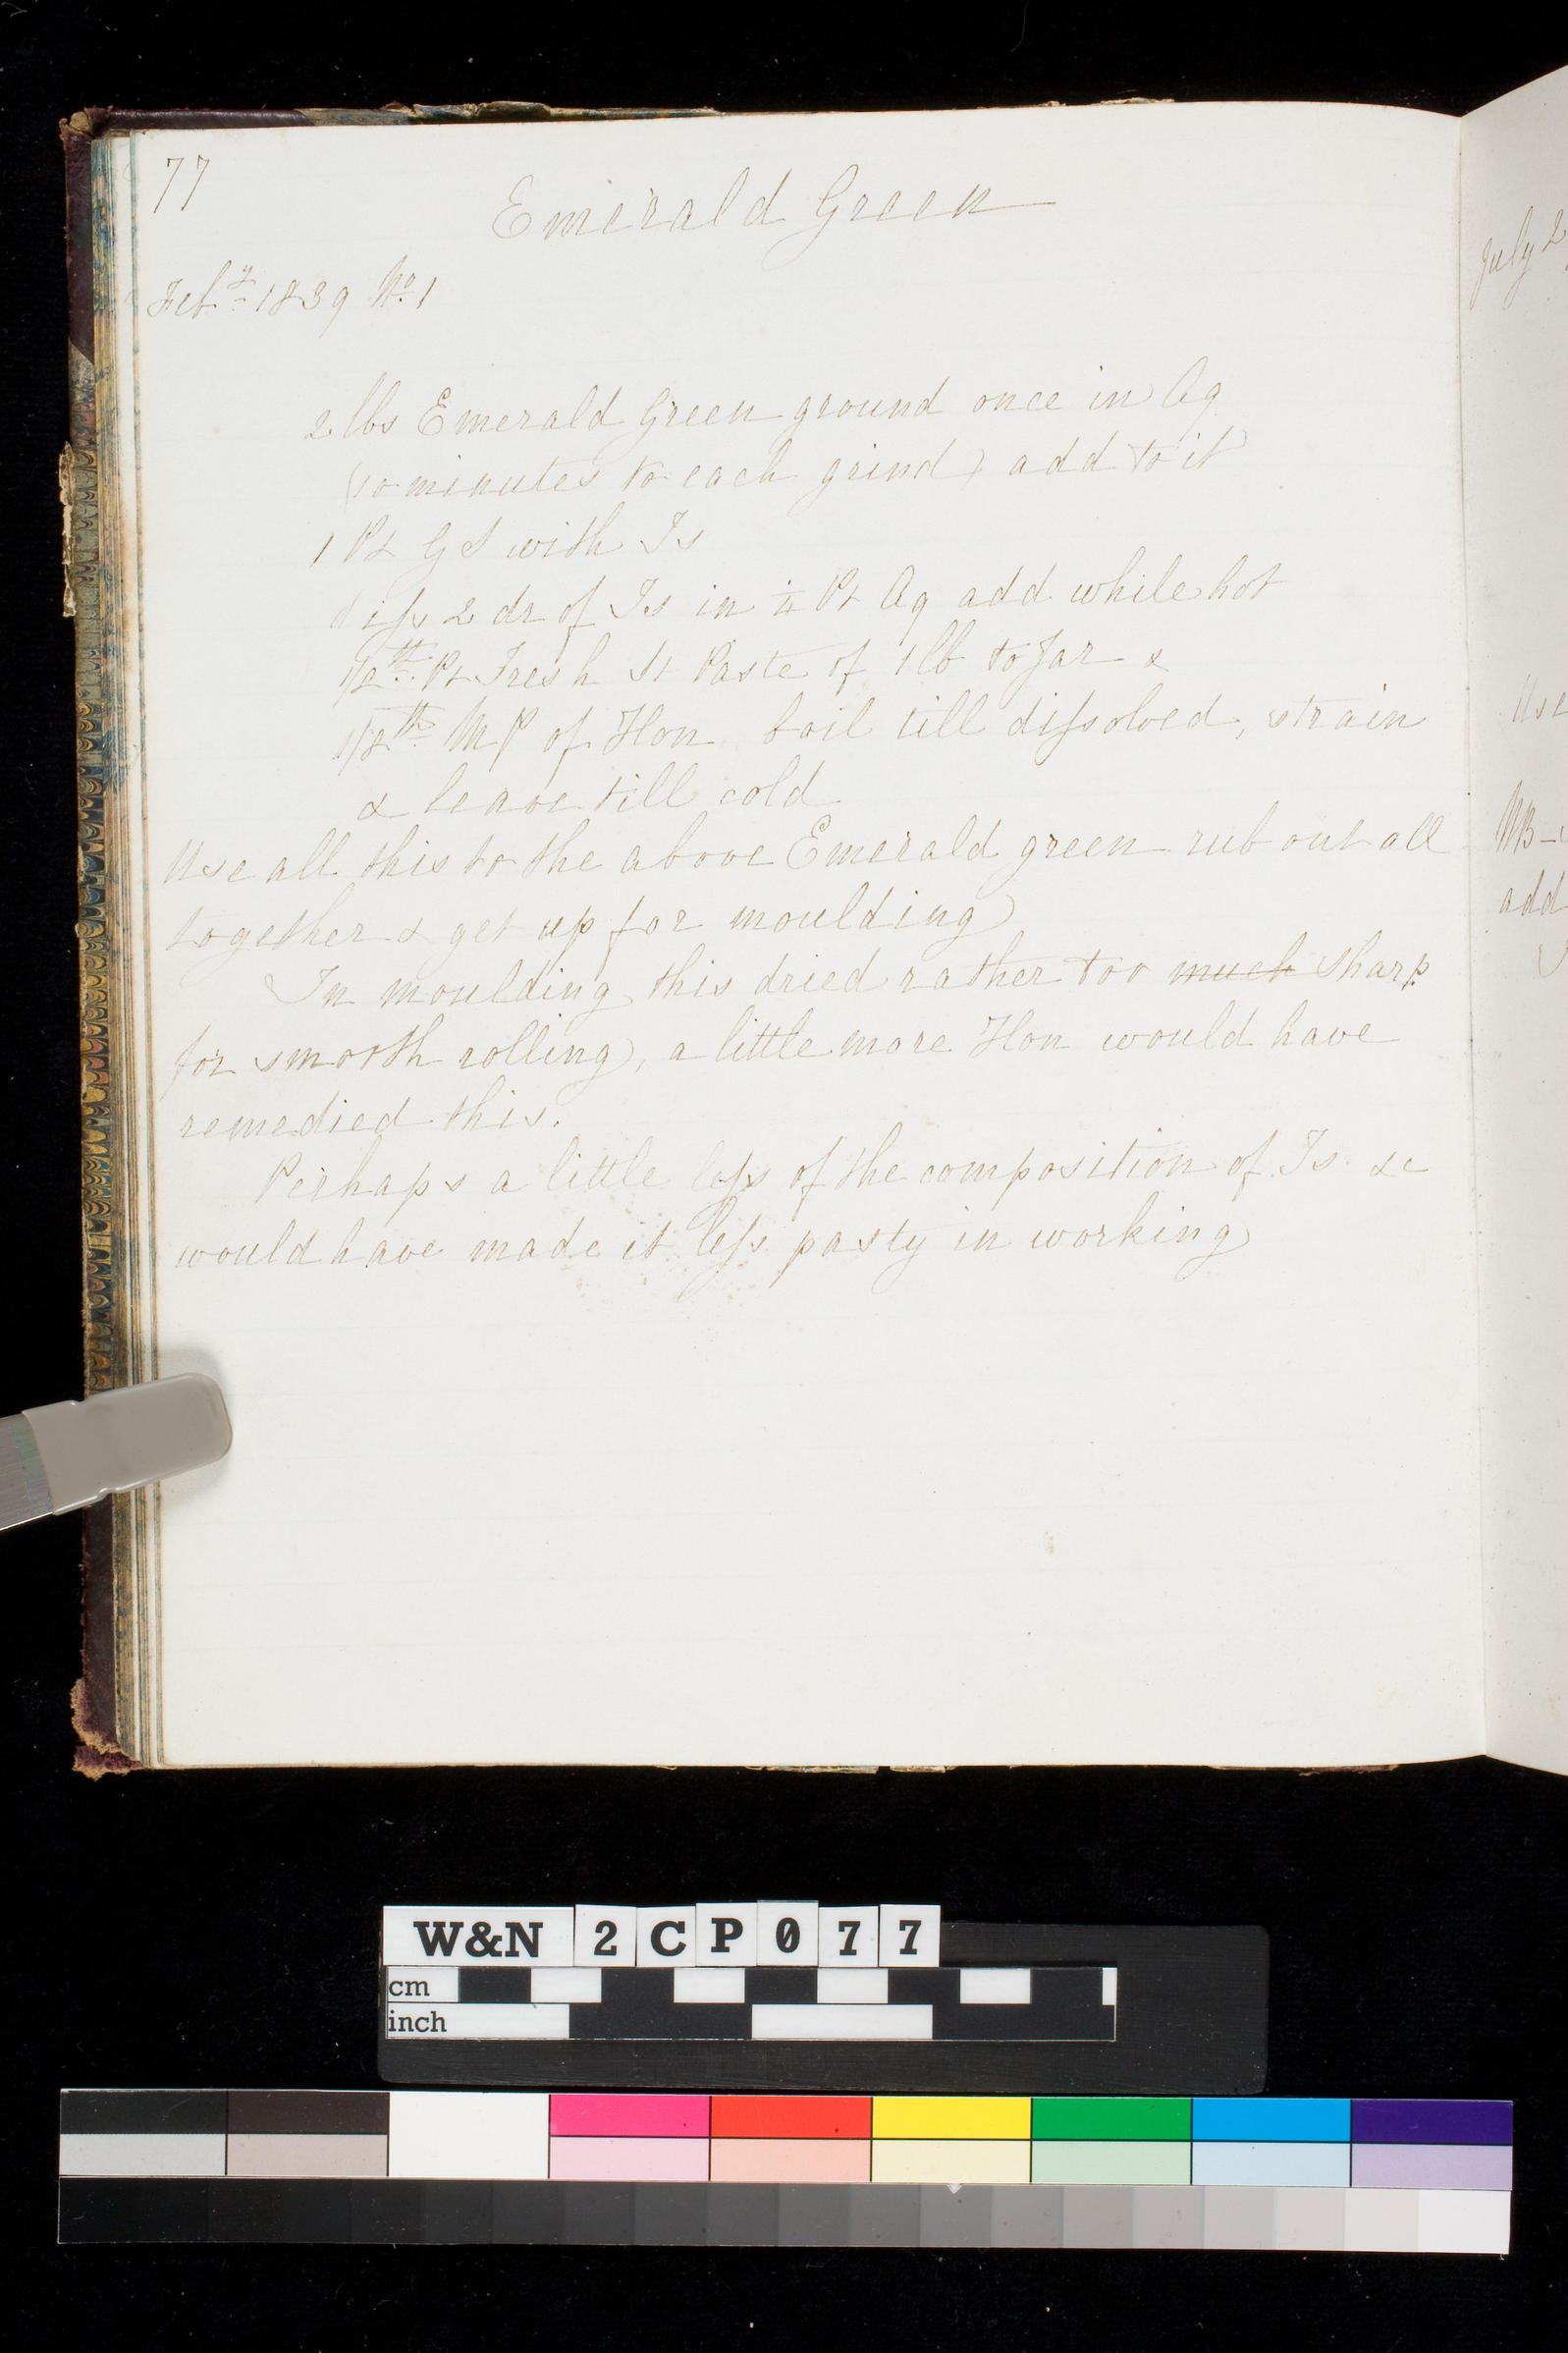 77
Emerald Green
Feby 1839 No. 1
2 lbs Emerald Green ground once in Aq
(10 minutes to each grind) add to it
1 Pt G S with Is
diſs 2 dr of Is in 1/4 Pt Aq add while hot
Pt Fresh St Paste of 1 lb to Jar &
M P of Hon boil till diſsolved, strain
& leave till cold
Use all this to the above Emerald green rub out all
together & get up for moulding
In moulding this dried rather too much sharp
for smooth rolling, a little more Hon would have
remedied this.
Perhaps a little leſs of the composition of Is &c
would have made it leſs pasty in working
July 2
Use
NB -
add
W&N 2CP077
cm
inch